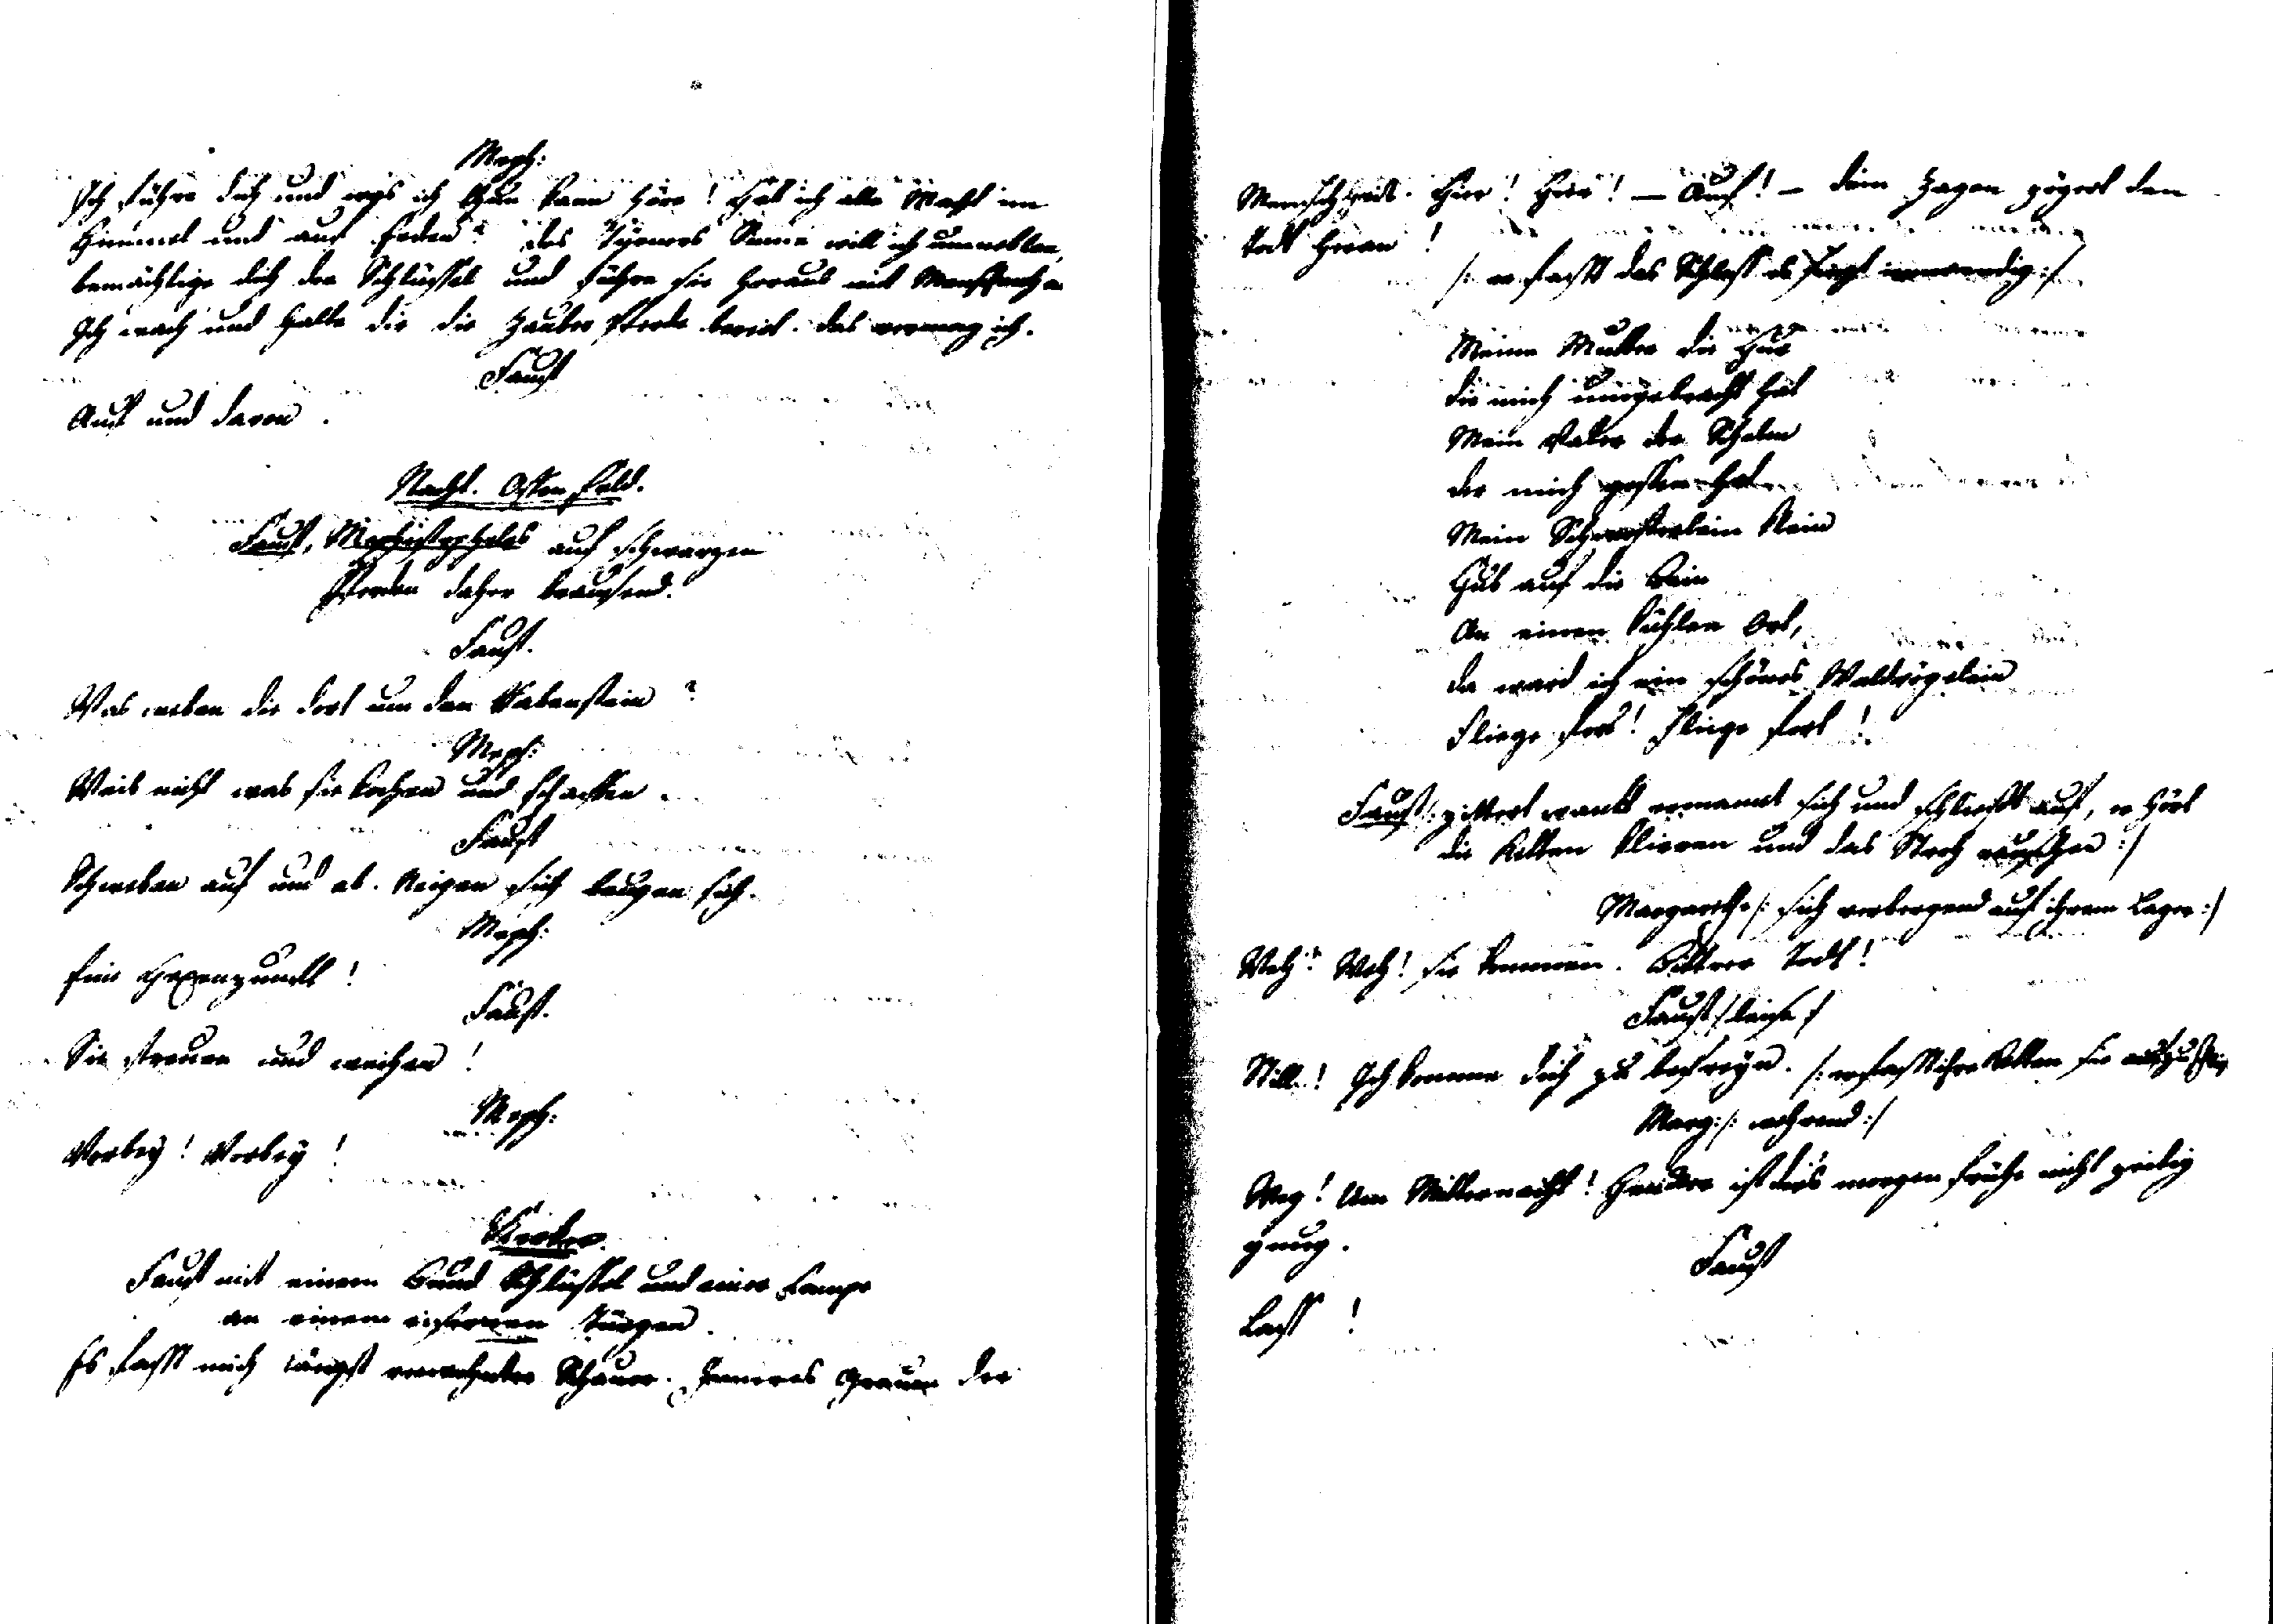 Meph:
Ich führe dich und was ich thun kann höre! Hab ich alle Macht im
Himmel und auf Erden? Des Türners Sinne will ich umneblen,
bemächtige dich der Schlüssel und führe sie heraus mit Menschenhand.
Ich wach und halte dir die Zauber Pferde bereit. das vermag ich.
Faust
Auf und davon.
Nacht. Offen Feld.
Faust, Mephistopheles auf schwarzen
Pferden daher brausend.
Faust.
Was weben die dort um den Rabenstein?
Meph:
Weis nicht was sie kochen und schaffen.
Faust
Schweben auf und ab. Neigen sich beugen sich.
Meph:
Eine Hexenzunft!
Faust.
Sie streuen und weihen!
Meph:
Vorbey! Vorbey!
Kerker.
Faust mit einem Bund Schlüssel und einer Lampe
an einem eisernen Türgen.
Es fasst mich längst verwohnter Schauer. Inneres Grauen der
Menschheit. Hier! Hier! — Auf! — dein Zagen zögert den
Todt heran!
/: er fasst das Schloss es singt innwendig :/
Meine Mutter die Hur
die mich umgebracht hat
Mein Vater der Schelm
der mich gessen hat
Mein Schwesterlein klein
Hub auf die Bein
An einen kühlen Ort,
da ward ich ein schönes Waldvögelein
Fliege fort! Fliege fort!
Faust /: zittert wankt ermannt sich und schliesst auf, er hört
die Ketten klirren und das Stroh rauschen :/
Margarethe /: sich verbergend auf ihrem Lager :/
Weh! Weh! sie kommen. Bittrer Todt!
Faust /: leise :/
Still! Ich komme dich zu befreyn. /: erfasst ihre Ketten sie aufzuschlies
Marg: /: wehrend :/
Weg! Um Mitternacht! Hencker ist dirs morgen frühe nicht zeitig
gnug.
Faust
Lass!